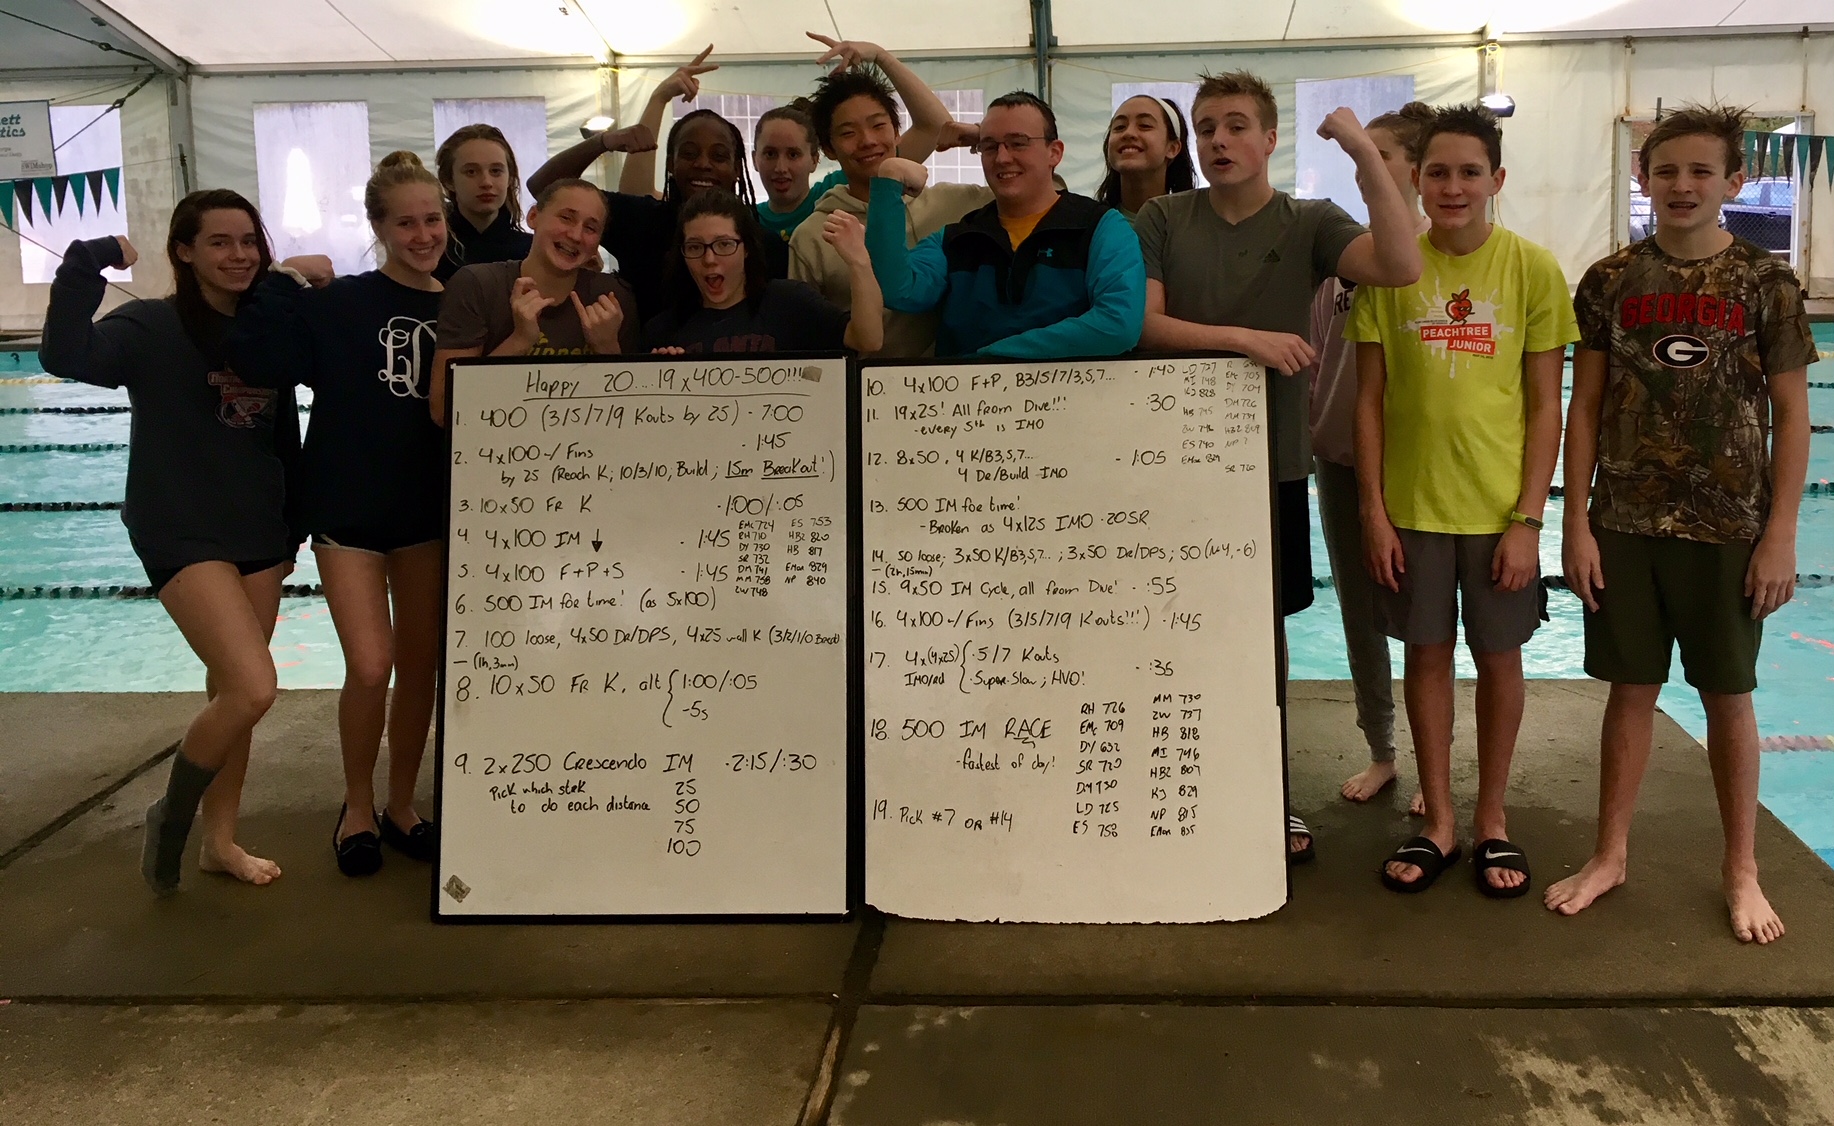 Happy 20....19 x 400-500!!!
1. 400 (3/5/7/9 Kouts by 25) - 7:00
2. 4x100 w/ Fins - 1:45
by 25 (Reach K; 10/3/10, Build; 15m Breakout!)
3. 10x50 FR K - 1:00/:05
4. 4x100 IM ↓ - 1:45
5. 4x100 F+P+S - 1:45
EMc 724 ES 753
RH 710 HB2 820
DY 730 HB 817
SR 732
DM 741 EMon 829
MM 758 NP 840
ZW 748
6. 500 IM for time! (as 5x100)
7. 100 loose, 4x50 Dr/DPS, 4x25 w-all K (3/2/1/0 Breath)
— (1h, 3min)
8. 10x50 FR K, alt { 1:00/:05
-5s
9. 2x250 Crescendo IM - 2:15/:30
Pick which stroke 25
to do each distance 50
75
100
10. 4x100 F+P, B3/5/7/3,5,7... - 1:45
11. 19x25! All from Dive!!! - :30
- every 5th is IMO
12. 8x50, 4 K/B3,5,7... - 1:05
4 Dr/Build - IMO
LD 727
MI 748 EMc 705
KJ 828 DY 704
HB 745 DM 726
MM 734
ZW 746 HB2 809
ES 740 NP ?
EMon 829
SR 720
13. 500 IM for time!
- Broken as 4x125 IMO - 20SR
14. 50 loose; 3x50 K/B3,5,7...; 3x50 Dr/DPS; 50 (N+4, -6)
— (2h, 15min)
15. 9x50 IM Cycle, all from Dive! - :55
16. 4x100 w/ Fins (3/5/7/9 Kouts!!!) - 1:45
17. 4x(4x25) { - 5/7 Kouts - :35
IMO/rd - Super-Slow; HVO!
18. 500 IM RACE
- fastest of day!
RH 726 MM 730
EMc 709 ZW 737
DY 632 HB 818
SR 720 MI 746
DM 730 HB2 807
LD 725 KJ 829
ES 750 NP 815
EMon 835
19. Pick #7 OR #14
PEACHTREE
JUNIOR
GEORGIA
G
3